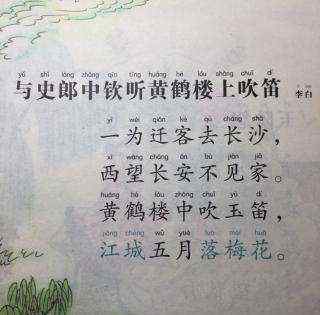 yǔ shǐ láng zhōng qīn tīng huáng hè lóu shàng chuī dí
与史郎中钦听黄鹤楼上吹笛 李白
yī wéi qiān kè qù cháng shā
一为迁客去长沙，
xī wàng cháng ān bú jiàn jiā
西望长安不见家。
huáng hè lóu zhōng chuī yù dí
黄鹤楼中吹玉笛，
jiāng chéng wǔ yuè luò méi huā
江城五月落梅花。